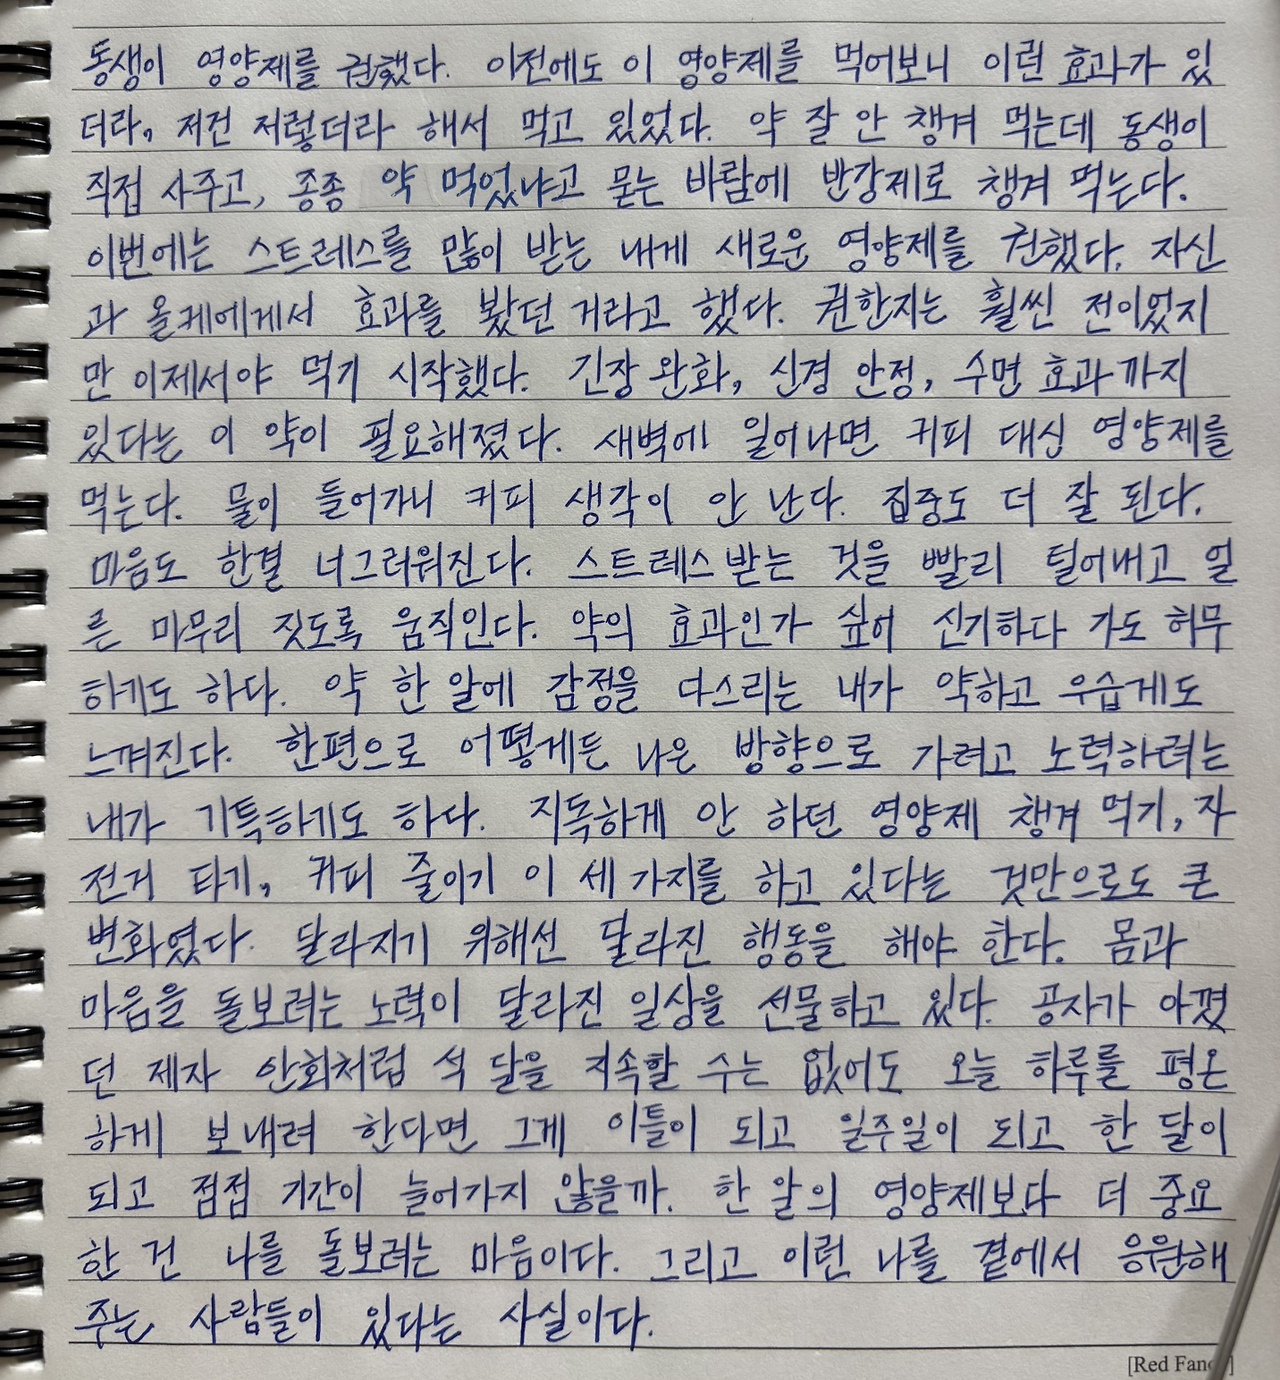 동생이 영양제를 권했다. 이전에도 이 영양제를 먹어보니 이런 효과가 있
더라, 저건 저렇더라 해서 먹고 있었다. 약 잘 안 챙겨 먹는데 동생이
직접 사주고, 종종 약 먹었냐고 묻는 바람에 반강제로 챙겨 먹는다.
이번에는 스트레스를 많이 받는 내게 새로운 영양제를 권했다. 자신
과 올케에게서 효과를 봤던 거라고 했다. 권한지는 훨씬 전이었지
만 이제서야 먹기 시작했다. 긴장 완화, 신경 안정, 수면 효과까지
있다는 이 약이 필요해졌다. 새벽에 일어나면 커피 대신 영양제를
먹는다. 물이 들어가니 커피 생각이 안 난다. 집중도 더 잘 된다.
마음도 한결 너그러워진다. 스트레스 받는 것을 빨리 털어내고 얼
른 마무리 짓도록 움직인다. 약의 효과인가 싶어 신기하다가도 허무
하기도 하다. 약 한 알에 감정을 다스리는 내가 약하고 우습게도
느껴진다. 한편으로 어떻게든 나은 방향으로 가려고 노력하려는
내가 기특하기도 하다. 지독하게 안 하던 영양제 챙겨 먹기, 자
전거 타기, 커피 줄이기 이 세 가지를 하고 있다는 것만으로도 큰
변화였다. 달라지기 위해선 달라진 행동을 해야 한다. 몸과
마음을 돌보려는 노력이 달라진 일상을 선물하고 있다. 공자가 아꼈
던 제자 안회처럼 석 달을 지속할 수는 없어도 오늘 하루를 평온
하게 보내려 한다면 그게 이틀이 되고 일주일이 되고 한 달이
되고 점점 기간이 늘어가지 않을까. 한 알의 영양제보다 더 중요
한 건 나를 돌보려는 마음이다. 그리고 이런 나를 곁에서 응원해
주는 사람들이 있다는 사실이다.